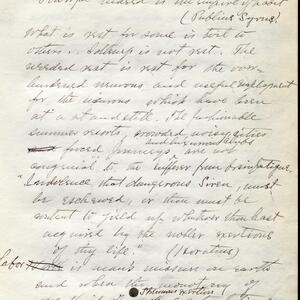 (Publius Syrus)
What is rest for some is toil to
others. is not rest. The
needed rest is rest for the over-
burdened neurons and useful employment
for the neurons which have been
at a stand still. The fashionable
summer resorts, crowded noisy cities
and
forced journeys are not
congenial to the sufferer from brain fatigue.
"Indolence that dangerous Siren, must
be eschewed, or thou must be
content to yield up whatever thou hast
acquired by the nobler exertions
of thy life." (Horatius)
Labor is man's measure on earth
and when the monotony of